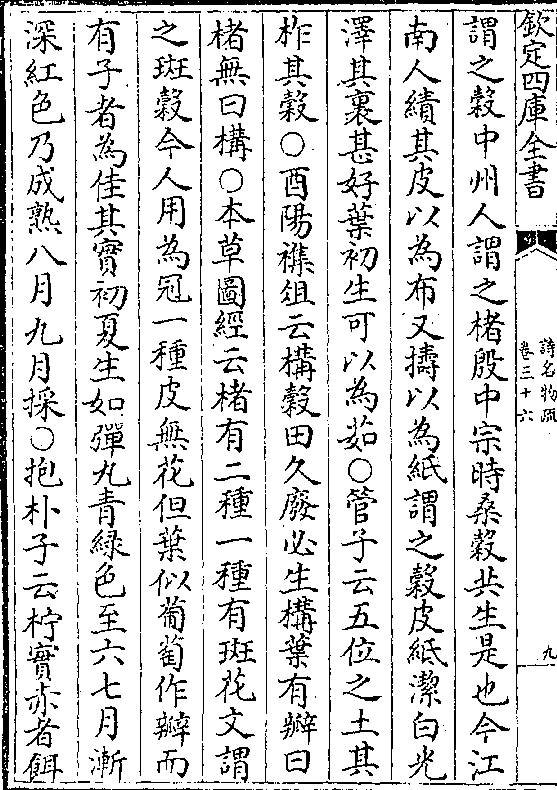 欽定四庫全書
詩名物疏
卷三十六
九
謂之榖中州人謂之楮殷中宗時桑榖共生是也今江
南人績其皮以為布又擣以為紙謂之榖皮紙潔白光
澤其裏甚好葉初生可以為茹○管子云五位之土其
柞其榖○酉陽襍俎云構榖田久廢必生構葉有瓣曰
楮無曰構○本草圖經云楮有二種一種有斑花文謂
之斑榖今人用為冠一種皮無花但葉似葡萄作瓣而
有子者為佳其實初夏生如彈丸青綠色至六七月漸
深紅色乃成熟八月九月採○抱朴子云柠實赤者餌